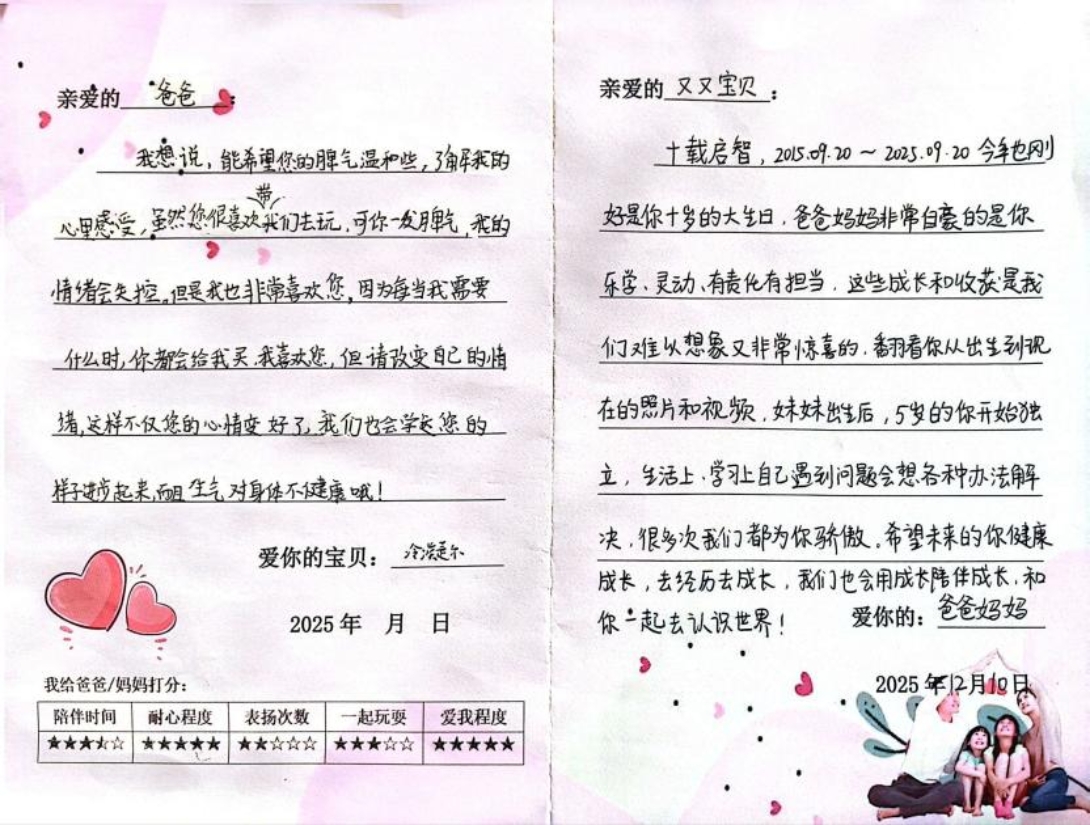 亲爱的 爸爸 :
我想说，能希望您的脾气温和些，了解我的
心里感受，虽然您很喜欢带我们去玩，可你一发脾气，我的
情绪会失控。但是我也非常喜欢您，因为每当我需要
什么时，你都会给我买，我喜欢您，但请改变自己的情
绪，这样不仅您的心情变好了，我们也会学起您的
样子进步起来，而且生气对身体不健康哦！
爱你的宝贝：
2025年 月 日
我给爸爸/妈妈打分：
陪伴时间 耐心程度 表扬次数 一起玩耍 爱我程度
★★★★☆ ★★★★★ ★★☆☆☆ ★★★☆☆ ★★★★★
亲爱的 又又宝贝 ：
十载启智，2015.09.20～2025.09.20 今年也刚
好是你十岁的大生日，爸爸妈妈非常自豪的是你
乐学、灵动、有责任有担当，这些成长和收获是我
们难以想象又非常惊喜的，翻看你从出生到现
在的照片和视频，妹妹出生后，5岁的你开始独
立，生活上、学习上自己遇到问题会想各种办法解
决，很多次我们都为你骄傲，希望未来的你健康
成长，去经历去成长，我们也会用成长陪伴成长，和
你一起去认识世界！
爱你的：爸爸妈妈
2025年12月10日